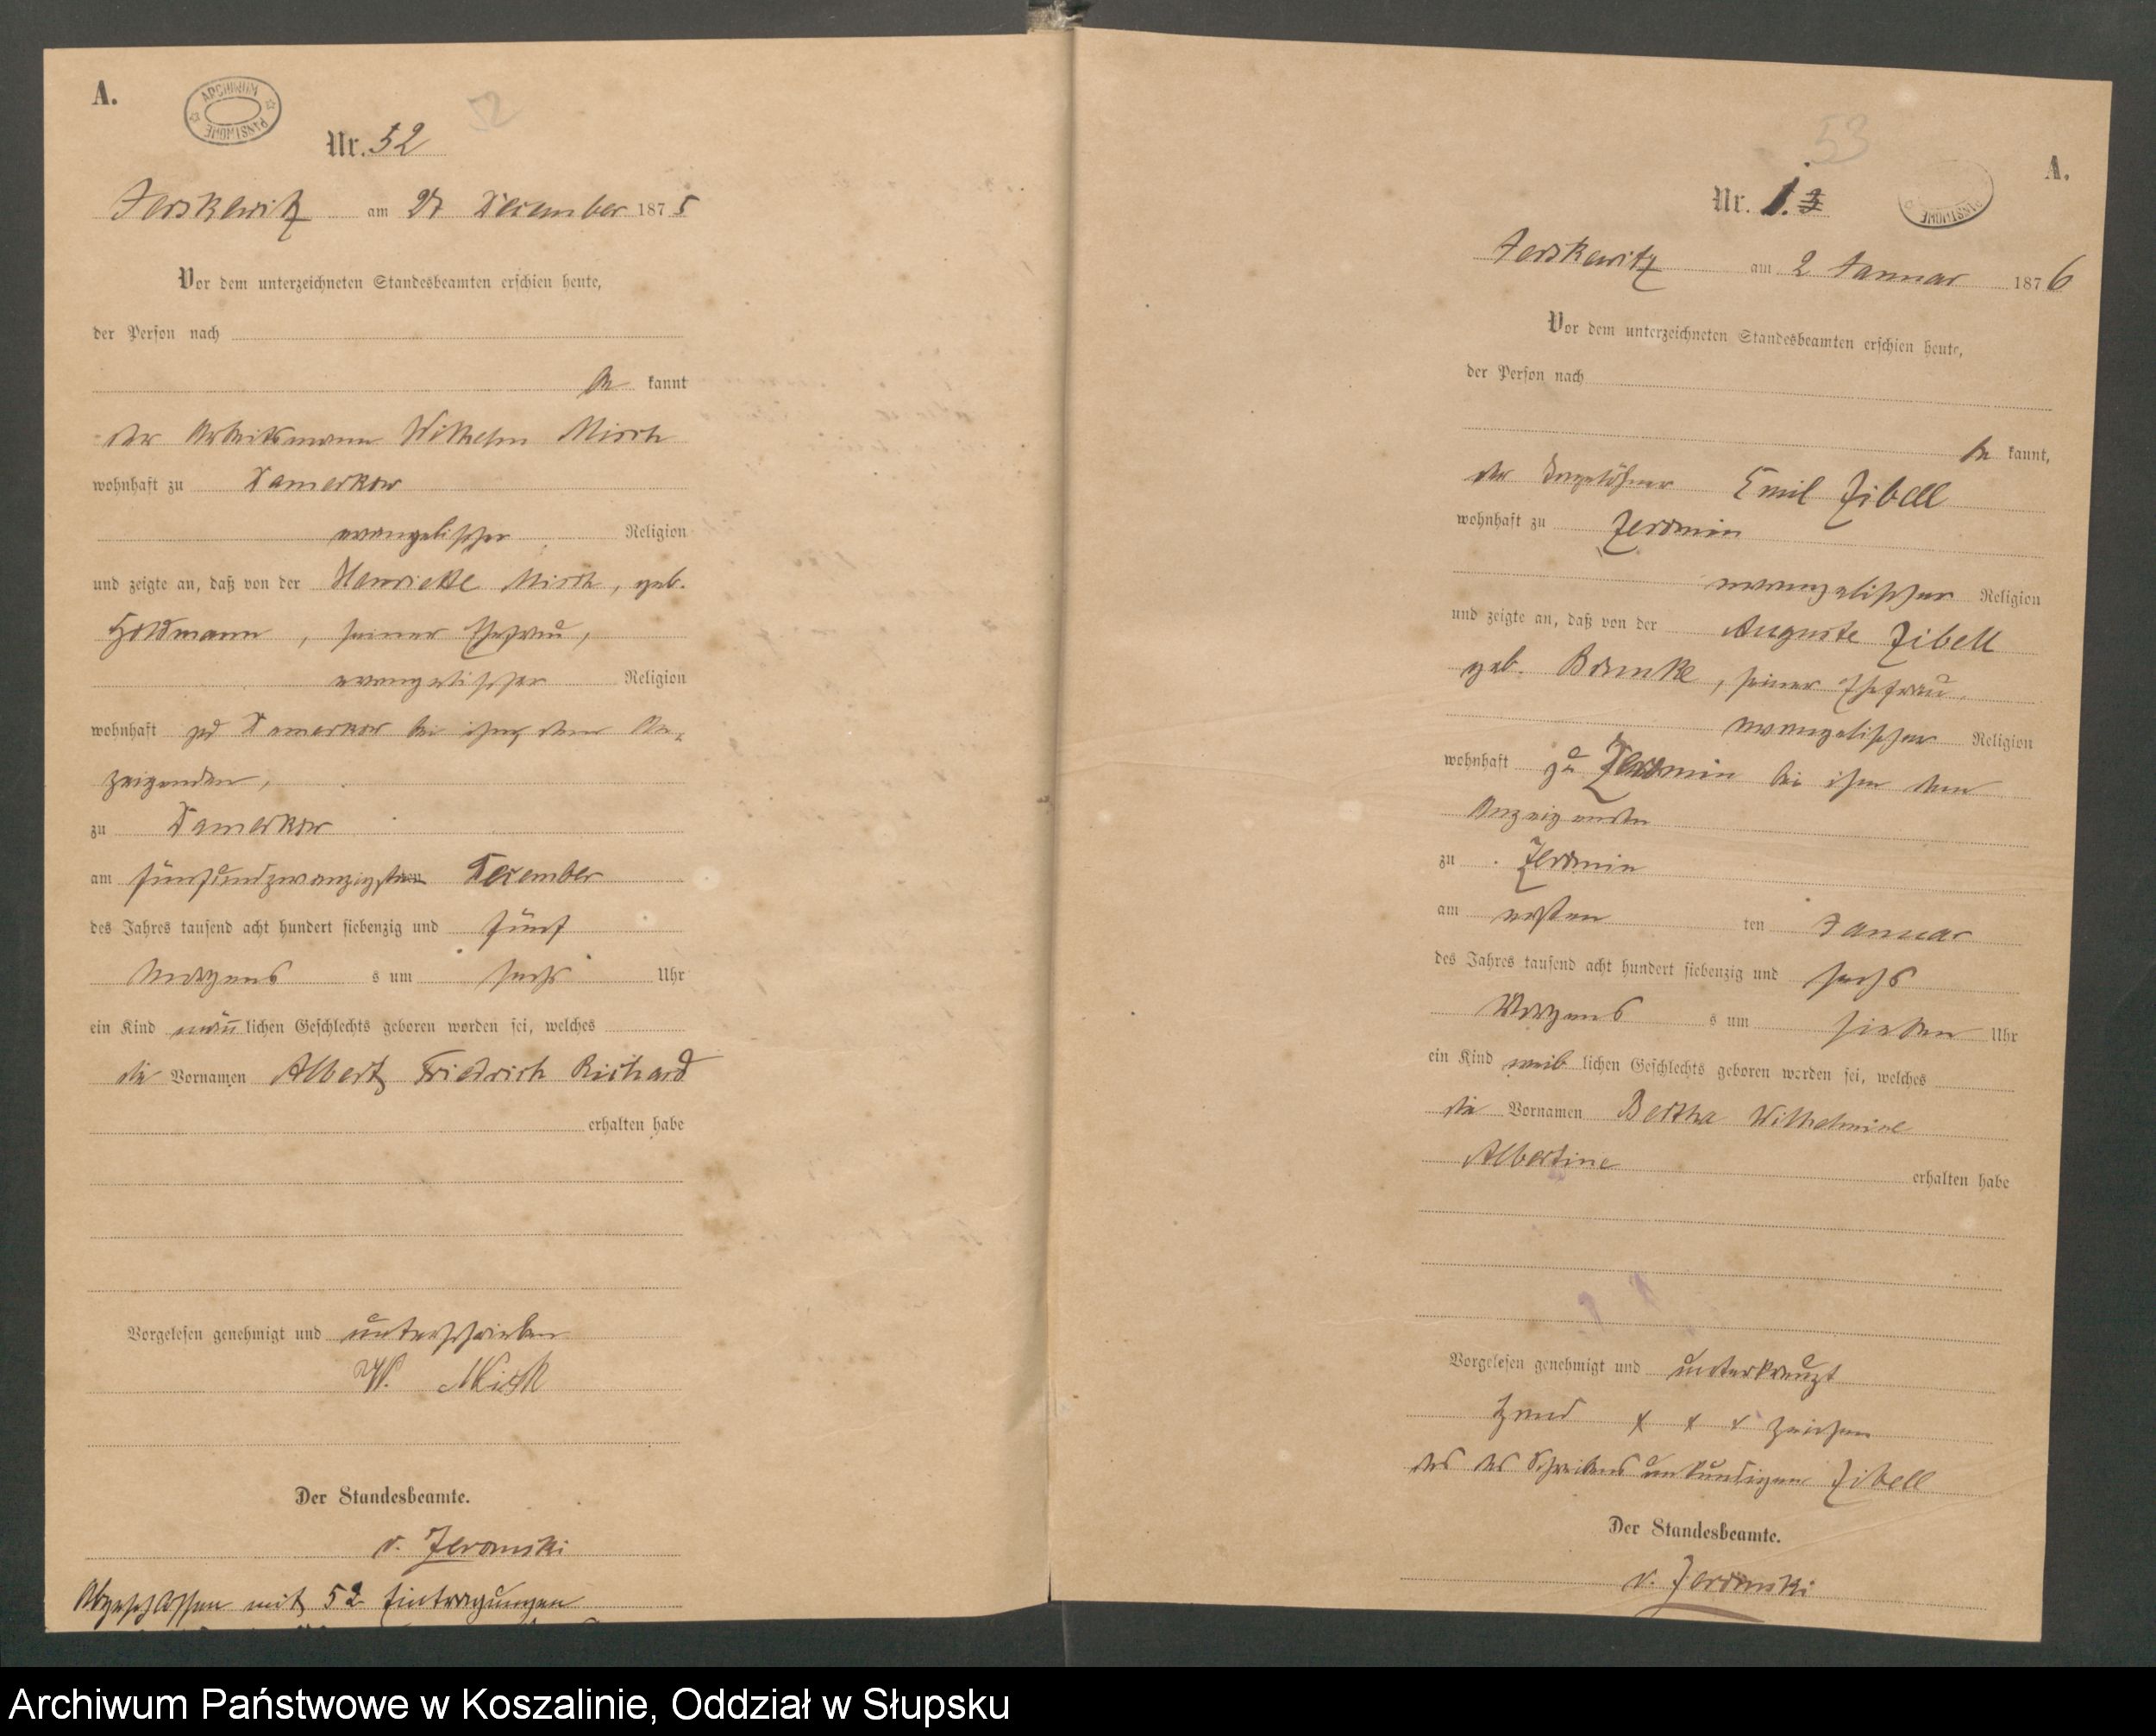 A.
ARCHIWUM PAŃSTWOWE
52
Nr. 52
Jerskewitz am 27 December 1875
Vor dem unterzeichneten Standesbeamten erschien heute,
der Person nach
be kannt
der Arbeitsmann Wilhelm Mirch
wohnhaft zu Damerkow
evangelischer Religion
und zeigte an, daß von der Henriette Mirch, geb.
Holdmann, seiner Ehefrau,
evangelischer Religion
wohnhaft zu Damerkow bei ihm, dem An-
zeigenden,
zu Damerkow
am fünfundzwanzigsten December
des Jahres tausend acht hundert siebenzig und fünf
Morgens s um sechs Uhr
ein Kind männlichen Geschlechts geboren worden sei, welches
die Vornamen Albert Friedrich Richard
erhalten habe
Vorgelesen genehmigt und unterschrieben
W.
Der Standesbeamte.
v. Zeromski
Abgeschlossen mit 52 Eintragungen
53
A.
PAŃSTWOWE
Nr. 1.
Jerskewitz am 2 Januar 1876
Vor dem unterzeichneten Standesbeamten erschien heute,
der Person nach
be kannt,
der Tagelöhner Emil Zibell
wohnhaft zu Zeromin
evangelischer Religion
und zeigte an, daß von der Auguste Zibell
geb. , seiner Ehefrau,
evangelischer Religion
wohnhaft zu Zeromin bei ihm dem
Anzeigenden
zu Zeromin
am ersten ten Januar
des Jahres tausend acht hundert siebenzig und sechs
Morgens s um sieben Uhr
ein Kind weiblichen Geschlechts geboren worden sei, welches
die Vornamen Bertha Wilhelmine
Albertine erhalten habe
Vorgelesen genehmigt und unterkreuzt
Hand x x x zeichen
des des Schreibens unkundigen Zibell
Der Standesbeamte.
v. Zeromski
Archiwum Państwowe w Koszalinie, Oddział w Słupsku